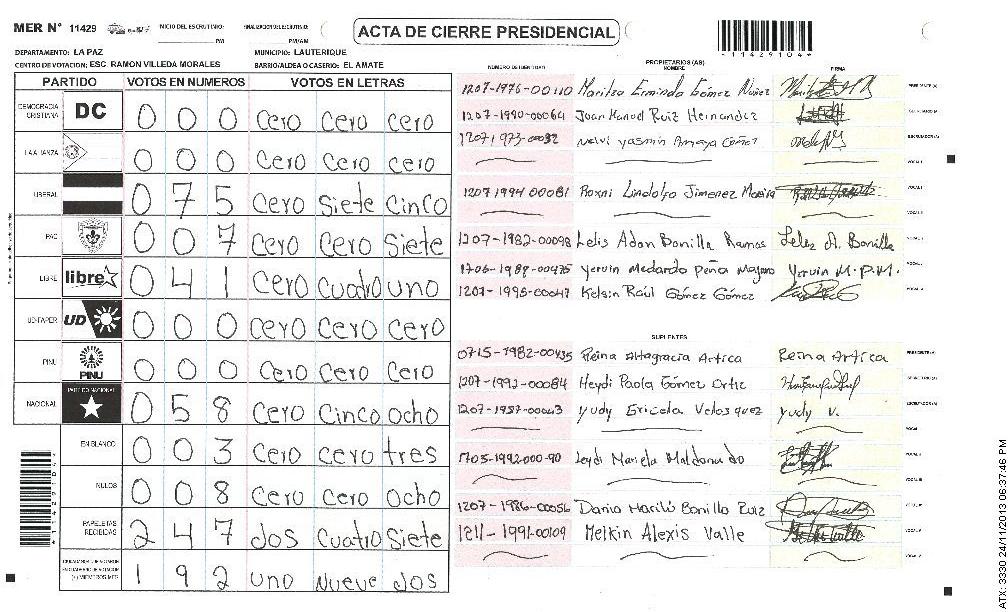 MER N° 11429 INICIO DEL ESCRUTINIO: PM PM/AM
ACTA DE CIERRE PRESIDENCIAL
*11429104*
DEPARTAMENTO: LA PAZ MUNICIPIO: LAUTERIQUE
CENTRO DE VOTACION: ESC. RAMON VILLEDA MORALES BARRIO/ALDEA O CASERIO: EL AMATE
PARTIDO VOTOS EN NUMEROS VOTOS EN LETRAS
DEMOCRACIA CRISTIANA DC 0 0 0 cero cero cero
LA ALIANZA 0 0 0 cero cero cero
LIBERAL 0 7 5 cero siete cinco
PAC 0 0 7 cero cero siete
LIBRE libre 0 4 1 cero cuatro uno
UD-FAPER UD 0 0 0 cero cero cero
PINU PINU 0 0 0 cero cero cero
NACIONAL PARTIDO NACIONAL 0 5 8 cero cinco ocho
EN BLANCO 0 0 3 cero cero tres
NULOS 0 0 8 cero cero ocho
PAPELETAS RECIBIDAS 2 4 7 dos cuatro siete
1 9 2 uno nueve dos
NUMERO DE IDENTIDAD PROPIETARIOS (AS) NOMBRE FIRMA
1207-1976-00110 Maritza Erminda Gómez Nuñez PRESIDENTE (A)
1207-1990-00064 Joan Manuel Ruiz Hernandez SECRETARIO (A)
1207 1973-00032 Nelvi yasmin Amaya Gómez ESCRUTADOR (A)
VOCAL I
1207 1994 00081 Roxni Lindolfo Jimenez Moreira VOCAL II
VOCAL III
1207-1982-00098 Lelis Adan Bonilla Ramos Leles A. Bonilla
1706-1989-00475 Yervin Medardo Peña Yervin M. P. M.
1207-1995-00047 Kelsin Raúl Gómez Gómez
SUPLENTES
0715-1982-00435 Reina Altagracia Artica Reina Artica PRESIDENTE (A)
1207-1992-00084 Heydi Paola Gómez Ortiz SECRETARIO (A)
1207-1987-00043 Yudy Ericela Velasquez Yudy V. ESCRUTADOR (A)
1703-1992-000-90 Leydi Mariela Maldonado
1207-1986-00056 Dania Marilú Bonilla Ruiz
1211-1991-00109 Melkin Alexis Valle Melkin Valle
ATX: 3330 24/11/2013 06:37:46 PM